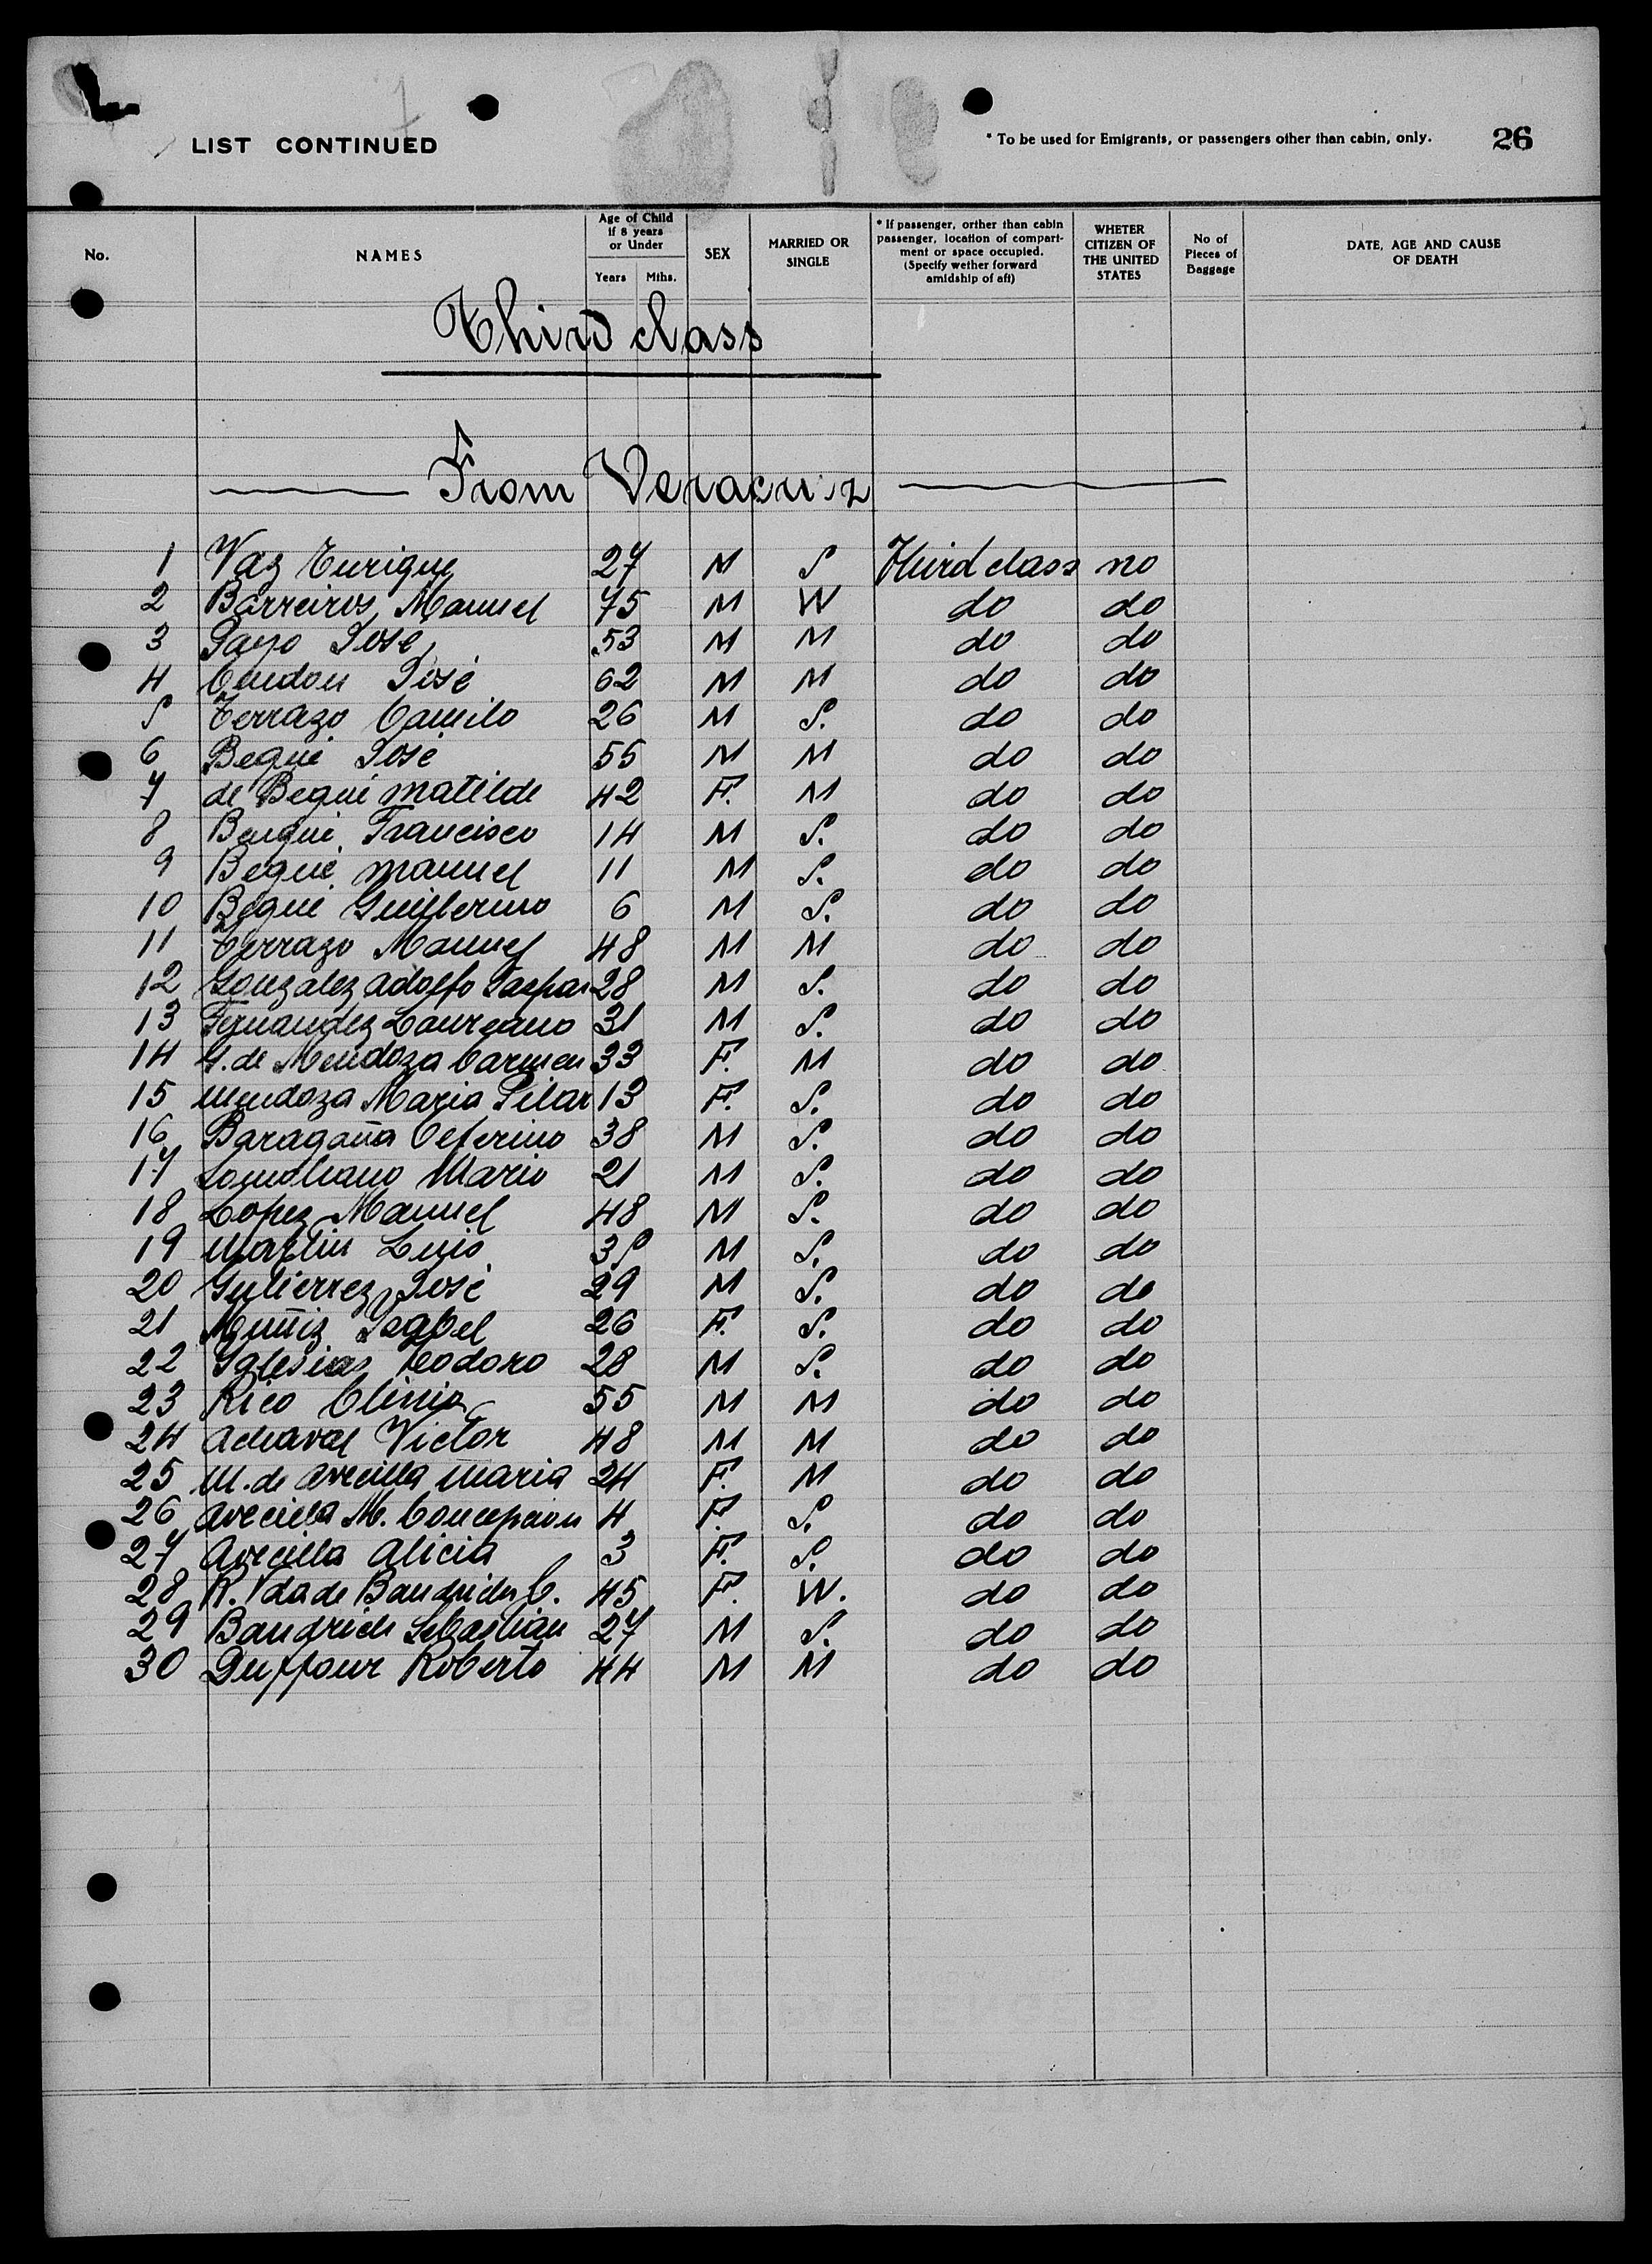 LIST CONTINUED
* To be used for Emigrants, or passengers other than cabin, only.
26
No. NAMES Age of Child if 8 years or Under Years Mths. SEX MARRIED OR SINGLE * If passenger, orther than cabin passenger, location of compartment or space occupied. (Specify wether forward amidship of aft) WHETER CITIZEN OF THE UNITED STATES No of Pieces of Baggage DATE, AGE AND CAUSE OF DEATH
Third class
From Veracruz
1 Vaz Enrique 27 M S Third class no
2 Barreiros, Manuel 75 M W do do
3 Payo José 53 M M do do
4 José 62 M M do do
5 Terrazo Camilo 26 M S. do do
6 Begué José 55 M M do do
7 de Begué Matilde 42 F. M do do
8 Francisco 14 M S. do do
9 Begué Manuel 11 M S. do do
10 Begué Guillermo 6 M S. do do
11 Terrazo Manuel 48 M M do do
12 Gonzalez Adolfo Gaspar 28 M S. do do
13 Fernandez Laureano 31 M S. do do
14 G. de Mendoza Carmen 33 F. M do do
15 Mendoza Maria Pilar 13 F. S. do do
16 Baragaña Ceferino 38 M S. do do
17 Mario 21 M S. do do
18 Lopez Manuel 48 M S. do do
19 Martin Luis 35 M S. do do
20 Gutierrez José 29 M S. do do
21 Muñiz Isabel 26 F. S. do do
22 Iglesias Teodoro 28 M S. do do
23 Rico 55 M M do do
24 Achaval Victor 48 M M do do
25 M. de Arecilla Maria 24 F. M do do
26 Arecilla M. Concepcion 4 F. S. do do
27 Arecilla Alicia 3 F. S. do do
28 R. Vda de C. 45 F. W. do do
29 Baudrich Sebastian 27 M S. do do
30 Duffour Roberto 44 M M do do